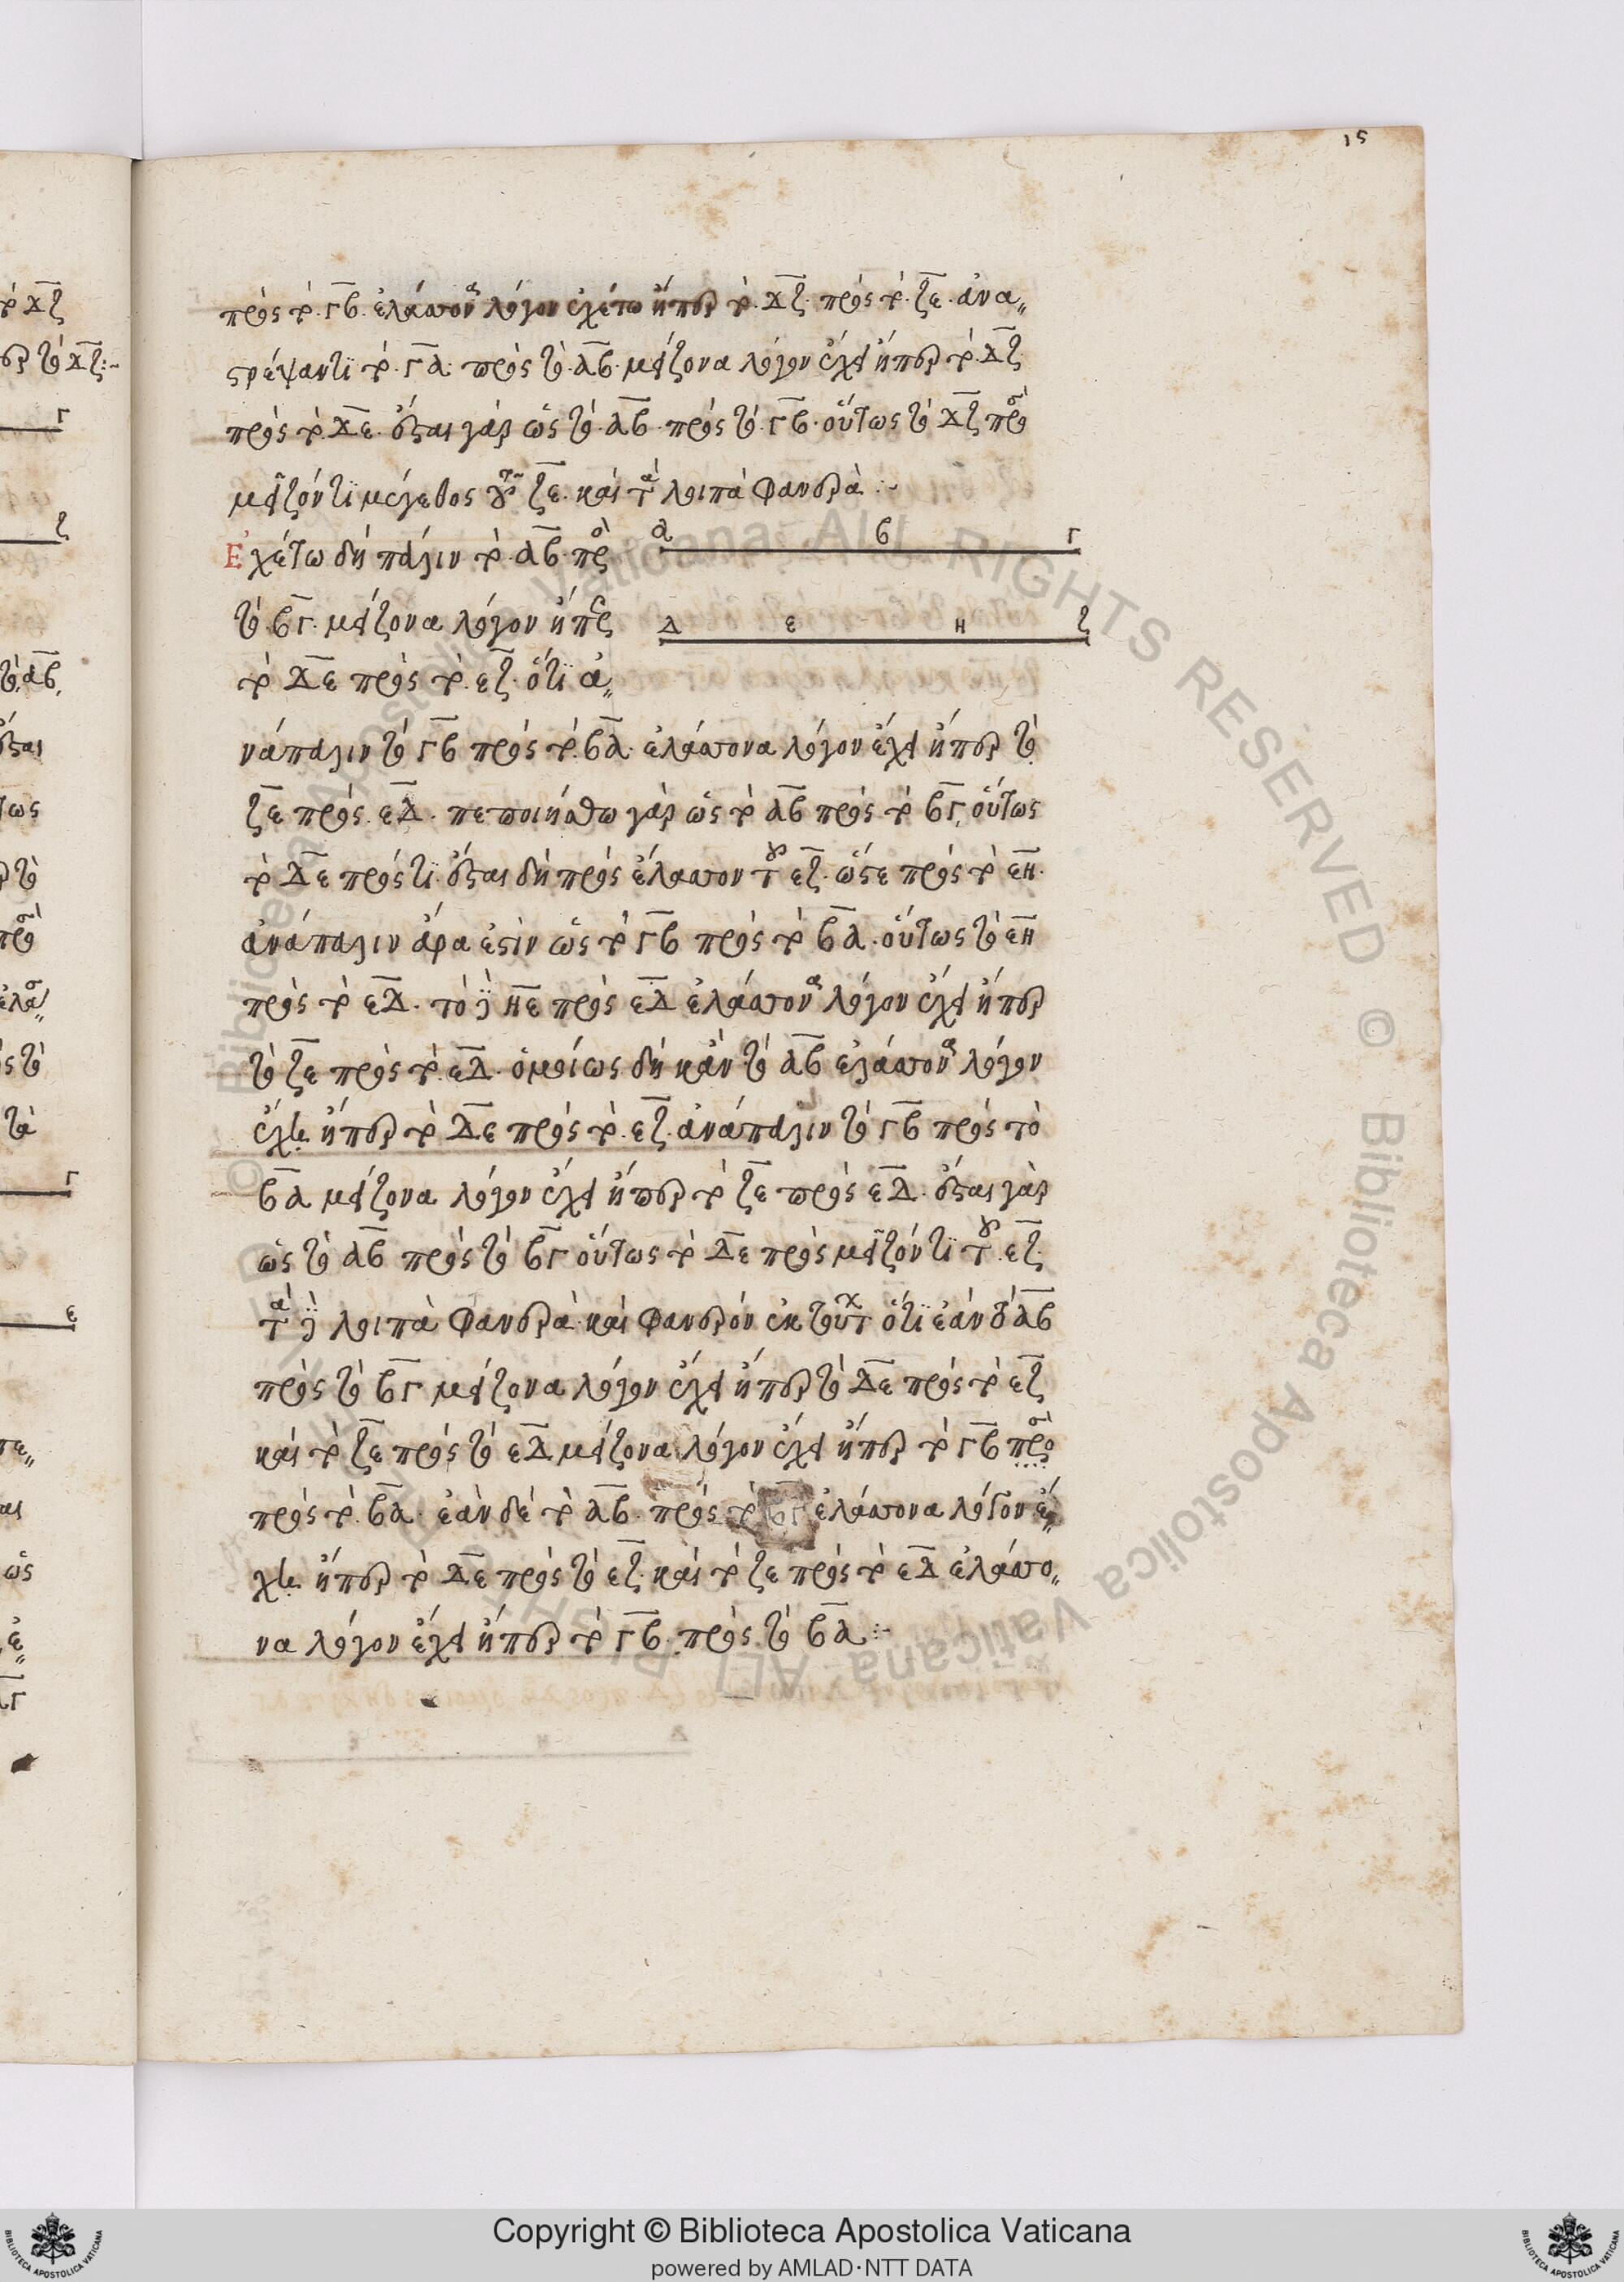 ις
πρὸς τὸ· ΓΒ· ἐλάττονα λόγον ἐχέτω ἤπερ τὸ· ΔΖ· πρὸς τὸ· ΖΕ· ἀνα„
στρέψαντι τὸ· ΓΑ· πρὸς τὸ· ΑΒ· μείζονα λόγον ἔχει ἤπερ τὸ· ΔΖ
πρὸς τὸ· ΔΕ· ἔσται γὰρ ὡς τὸ· ΑΒ· πρὸς τὸ· ΓΒ· οὕτως τὸ ΔΖ πρὸς
μεῖζόν τι μέγεθος τῆς ΖΕ· καὶ τὰ λοιπὰ φανερὰ :~
Ἐχέτω δὴ πάλιν τὸ· ΑΒ· πρὸς
τὸ· ΒΓ· μείζονα λόγον ἤπερ
τὸ ΔΕ πρὸς τὸ· ΕΖ· ὅτι ἀ„
νάπαλιν τὸ ΓΒ πρὸς τὸ· ΒΑ· ἐλάττονα λόγον ἔχει ἤπερ τὸ
ΖΕ πρὸς· ΕΔ· πεποιήσθω γὰρ ὡς τὸ ΑΒ πρὸς τὸ ΒΓ, οὕτως
τὸ ΔΕ πρός τι· ἔσται δὴ πρὸς ἔλαττον τοῦ ΕΖ· ὥστε πρὸς τὸ ΕΗ·
ἀνάπαλιν ἄρα ἐστὶν ὡς τὸ ΓΒ πρὸς τὸ ΒΑ· οὕτως τὸ ΕΗ
πρὸς τὸ ΕΔ· τὸ δὲ ΗΕ πρὸς ΕΔ ἐλάττονα λόγον ἔχει ἤπερ
τὸ ΖΕ πρὸς τὸ· ΕΔ· ὁμοίως δὴ κἂν τὸ ΑΒ ἐλάττονα λόγον
ἔχῃ ἤπερ τὸ ΔΕ πρὸς τὸ· ΕΖ· ἀνάπαλιν τὸ ΓΒ πρὸς τὸ
ΒΑ μείζονα λόγον ἔχει ἤπερ τὸ ΖΕ πρὸς ΕΔ· ἔσται γὰρ
ὡς τὸ ΑΒ πρὸς τὸ ΒΓ οὕτως τὸ ΔΕ πρὸς μεῖζόν τι τοῦ· ΕΖ·
τὰ δὲ λοιπὰ φανερὰ· καὶ φανερὸν ἐκ τούτ ὅτι ἐὰν τὸ ΑΒ
πρὸς τὸ ΒΓ μείζονα λόγον ἔχει ἤπερ τὸ ΔΕ πρὸς τὸ ΕΖ
καὶ τὸ ΖΕ πρὸς τὸ ΕΔ μείζονα λόγον ἔχει ἤπερ τὸ ΓΒ πρὸς
πρὸς τὸ· ΒΑ· ἐὰν δὲ τὸ ΑΒ· πρὸς τὸ ΒΓ ἐλάττονα λόγον ἔ„
χῃ ἤπερ τὸ ΔΕ πρὸς τὸ ΕΖ· καὶ τὸ ΖΕ πρὸς τὸ ΕΔ ἐλάττο„
να λόγον ἔχει ἤπερ τὸ ΓΒ· πρὸς τὸ ΒΑ :~
Α Β Γ
Δ Ε Η Ζ
Copyright © Biblioteca Apostolica Vaticana
powered by AMLAD·NTT DATA